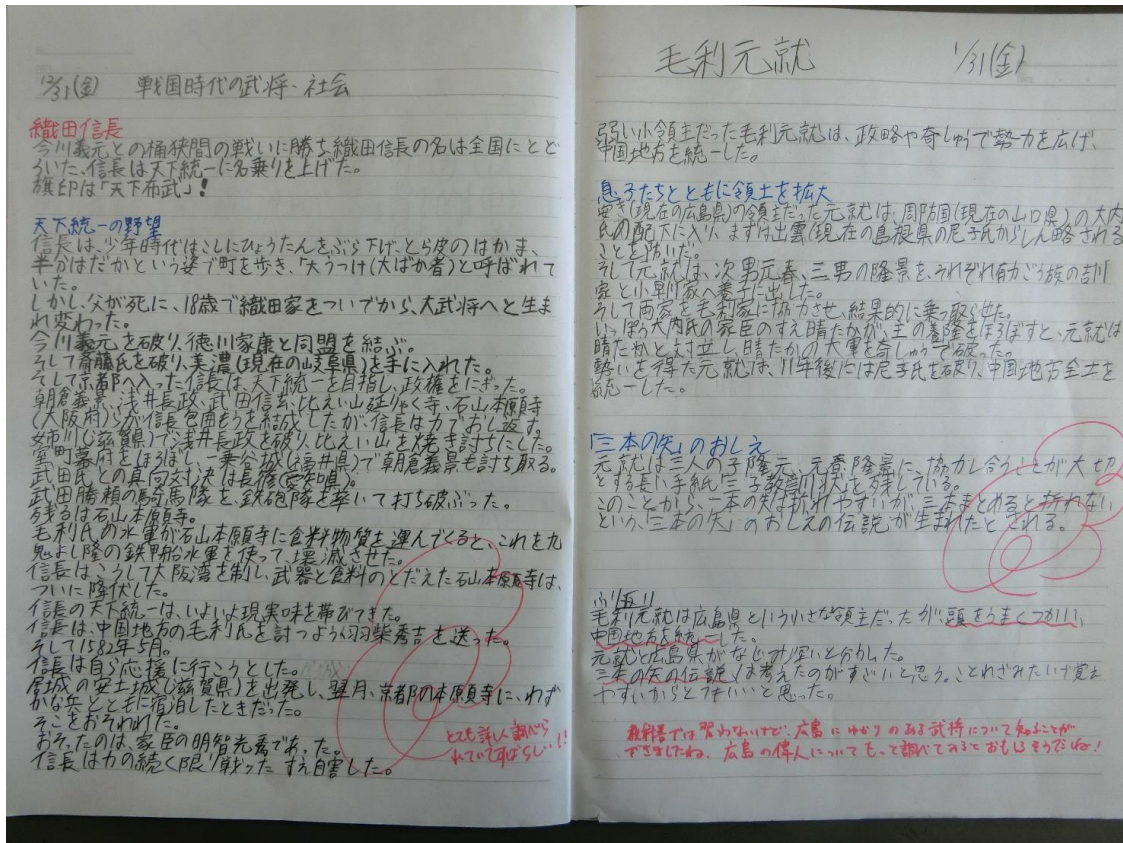 12/31(金) 戦国時代の武将、社会
織田信長
今川義元との桶狭間の戦いに勝ち織田信長の名は全国にとど
ろいた、信長は天下統一に名乗りを上げた。
旗印は「天下布武」!
天下統一の野望
信長は、少年時代はこしにひょうたんをぶら下げ、とら皮のはかま、
半分はだかという姿で町を歩き、「大うつけ(大ばか者)と呼ばれて
いた。
しかし、父が死に、18歳で織田家をついでから、大武将へと生ま
れ変わった。
今川義元を破り、徳川家康と同盟を結ぶ。
そして斎藤氏を破り、美濃(現在の岐阜県)を手に入れた。
そして京都へ入った信長は、天下統一を目指し、政権をにぎった。
朝倉義景、浅井長政、武田信玄、比えい山延りゃく寺、石山本願寺
(大阪府)らが信長包囲もうを結成したが、信長は力でおし返す。
姉川(滋賀県)で浅井長政を破り、比えい山を焼き討ちにした。
室町幕府をほろぼし、一乗谷城(福井県)で朝倉義景も討ち取る。
武田氏との真向対決は長篠(愛知県)。
武田勝頼の騎馬隊を、鉄砲隊を率いて打ち破ぶった。
残るは石山本願寺。
毛利氏の水軍が石山本願寺に食料物質を運んでくると、これを九
鬼よし隆の鉄甲船水軍を使って、壊滅させた。
信長はこうして大阪湾を制し、武器と食料のとだえた石山本願寺は、
ついに降伏した。
信長の天下統一は、いよいよ現実味を帯びてきた。
信長は、中国地方の毛利氏を討つよう羽柴秀吉を送った。
そして1582年5月。
信長は自ら応援に行こうとした。
居城の安土城(滋賀県)を出発し、翌月、京都の本願寺に、わず
かな兵とともに宿泊したときだった。
そこをおそわれた。
おそったのは、家臣の明智光秀であった。
信長は力の続く限り戦ったすえ自害した。
とても詳しく調べら
れていてすばらしい!!
毛利元就 1/31(金)
弱い小領主だった毛利元就は、政略や奇しゅうで勢力を広げ、
中国地方を統一した。
息子たちとともに領土を拡大
安き(現在の広島県)の領主だった元就は、周防国(現在の山口県)の大内
氏の配下に入り、まずは出雲(現在の島根県の尼子氏からしん略される
ことを防いだ。
そして元就は、次男元春、三男の隆景を、それぞれ有力ごう族の吉川
家と小早川家へ養子に出した。
そして両家を毛利家に協力させ、結果的に乗っ取らせた。
いっぽう大内氏の家臣のすえ晴たかが、主の義隆をほろぼすと、元就は
晴たかと対立し晴たかの大軍を奇しゅうで破った。
勢いを得た元就は、11年後には尼子氏を破り、中国地方全土を
統一した。
「三本の矢」のおしえ
元就は三人の子隆元、元春、隆景に、協力し合うことが大切
とする長い手紙「三子教訓状」を残している。
このことから、一本の矢は折れやすいが、三本まとめると折れない
という、「三本の矢」のおしえの伝説が生まれたとされる。
ふり返り
毛利元就は広島県という小さな領主だったが、頭をうまくつかい、
中国地方を統一した。
元就と広島県がなじみ深いと分かった。
三本の矢の伝説は考えたのがすごいと思う。ことわざみたいで覚え
やすいからとてもいいと思った。
教科書では習わないけど、広島にゆかりのある武将について知ることが
できましたね。広島の偉人についてもっと調べてみるとおもしろそうだね!